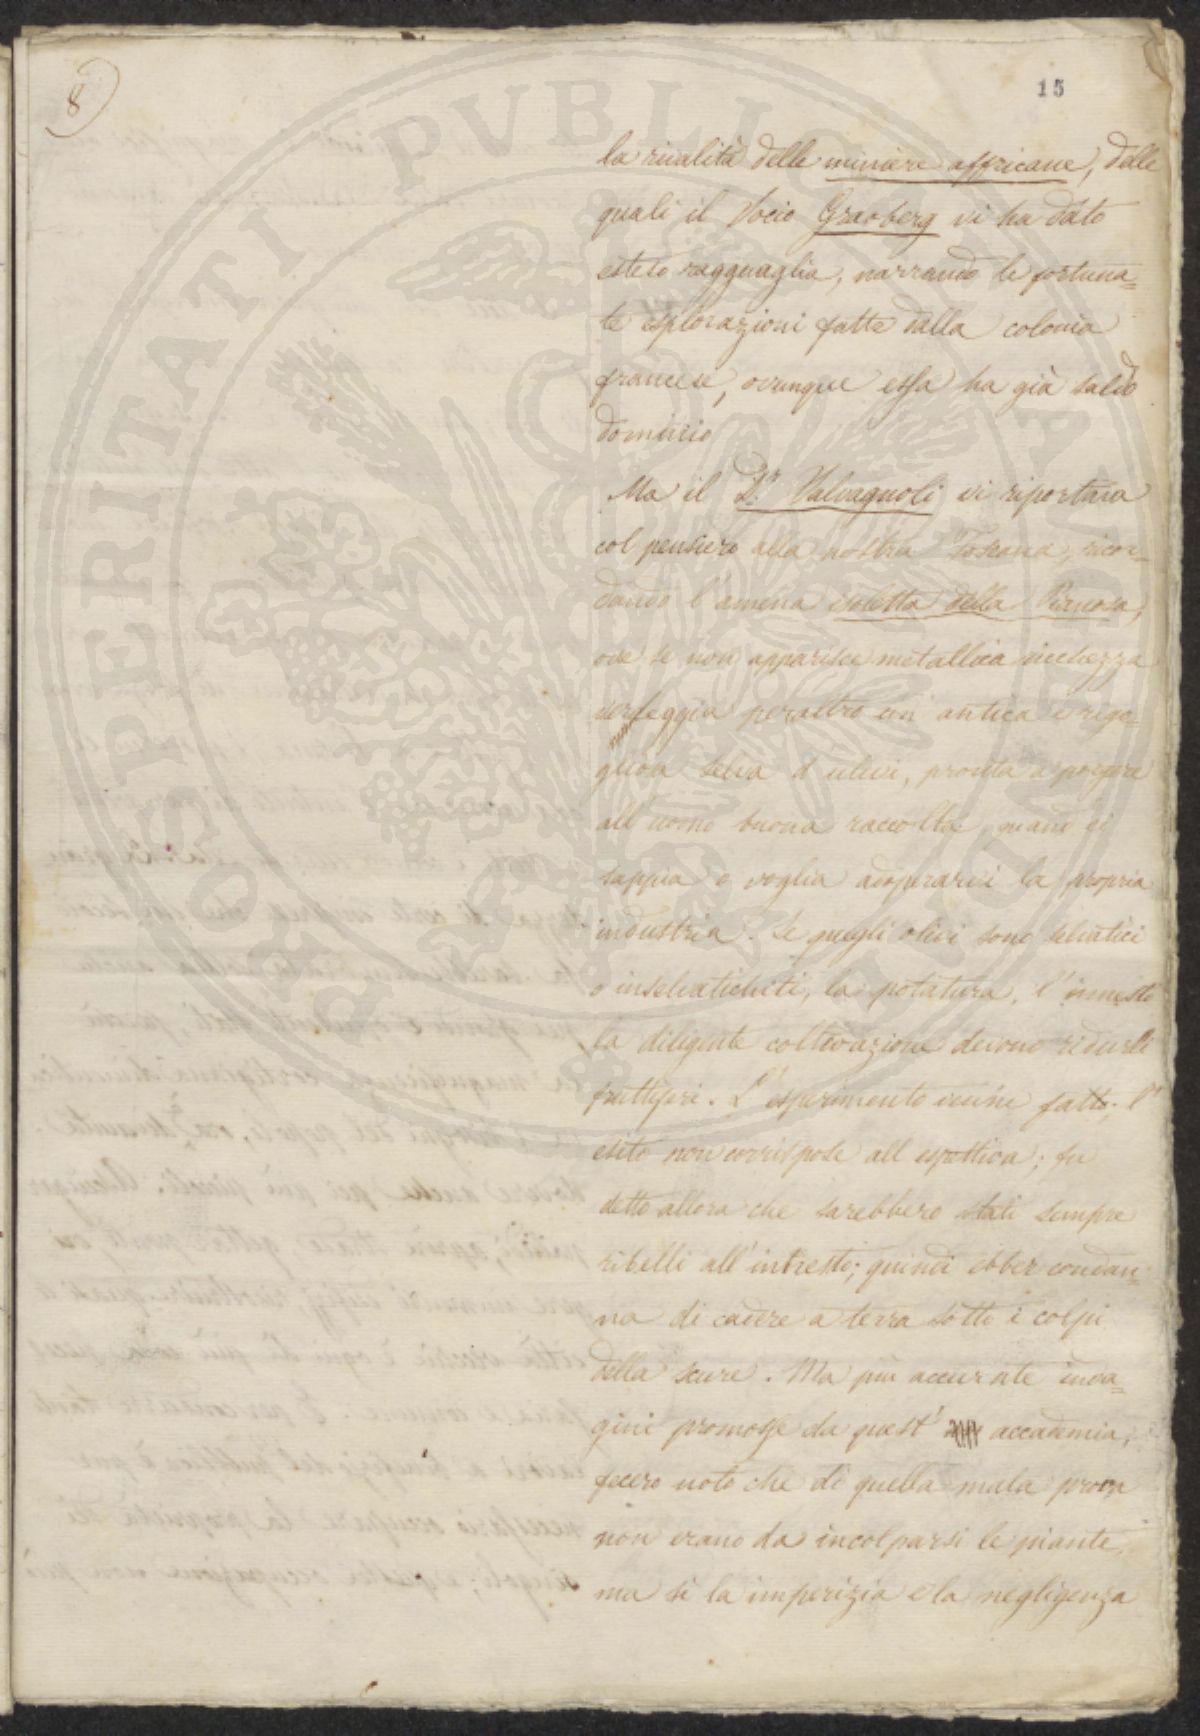 8
15
la rivalità delle miniere affricane, delle
quali il Socio Graoberg vi ha dato
esteso ragguaglio, narrando le fortuna=
te esplorazioni fatte dalla colonia
francese, ovunque essa ha già saldo
dominio
Ma il D.r Salvagnoli vi riportava
col pensiero alla nostra Toscana, ricor=
dando l'amena isoletta della Pianosa,
ove se non apparisce metallica ricchezza
verdeggia peraltro un' antica e rigo-
gliosa selva d'ulivi, pronta a porgere
all'uomo buona raccolta, quand'ei
sappia o voglia adoperarvi la propria
industria. Se quegli olivi sono selvatici
o inselvatichiti, la potatura, l'innesto
la diligente coltivazione devono ridurli
fruttiferi. L'esperimento venne fatto; l'
esito non corrispose all'espettiva; fu
detto allora che sarebbero stati sempre
ribelli all'intresto; quindi ebber condan=
na di cadere a terra sotto i colpi
della scure. Ma più accurate inda=
gini promosse da quest' accademia,
fecero noto che di quella mala prova
non erano da incolparsi le piante,
ma sì la imperizia e la negligenza
PROSPERITATI PUBLICAE AUGENDAE